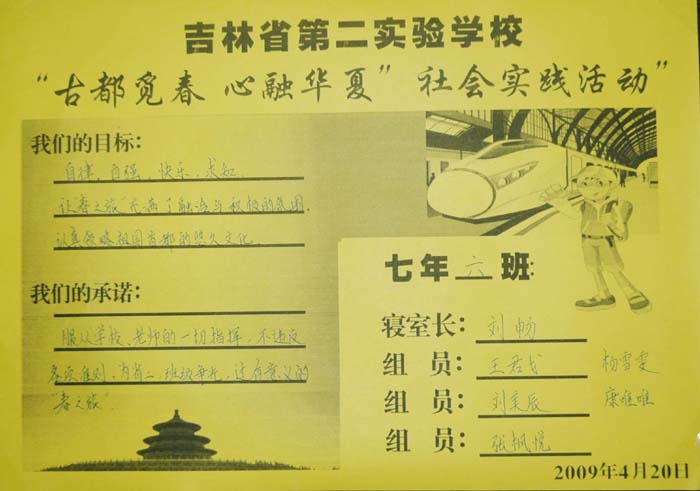 吉林省第二实验学校
“古都觅春 心融华夏”社会实践活动”
我们的目标：
自律、自强、快乐、求知.
让“春之旅”充满了融洽与积极的氛围.
认真领略祖国首都的悠久文化.
我们的承诺：
服从学校、老师的一切指挥，不违反
各项准则，为省二、班级争光，过有意义的
“春之旅”.
七年六班：
寝室长：刘畅
组 员：王君戈 杨雪雯
组 员：刘美辰 康唯唯
组 员：张枫悦
2009年4月20日